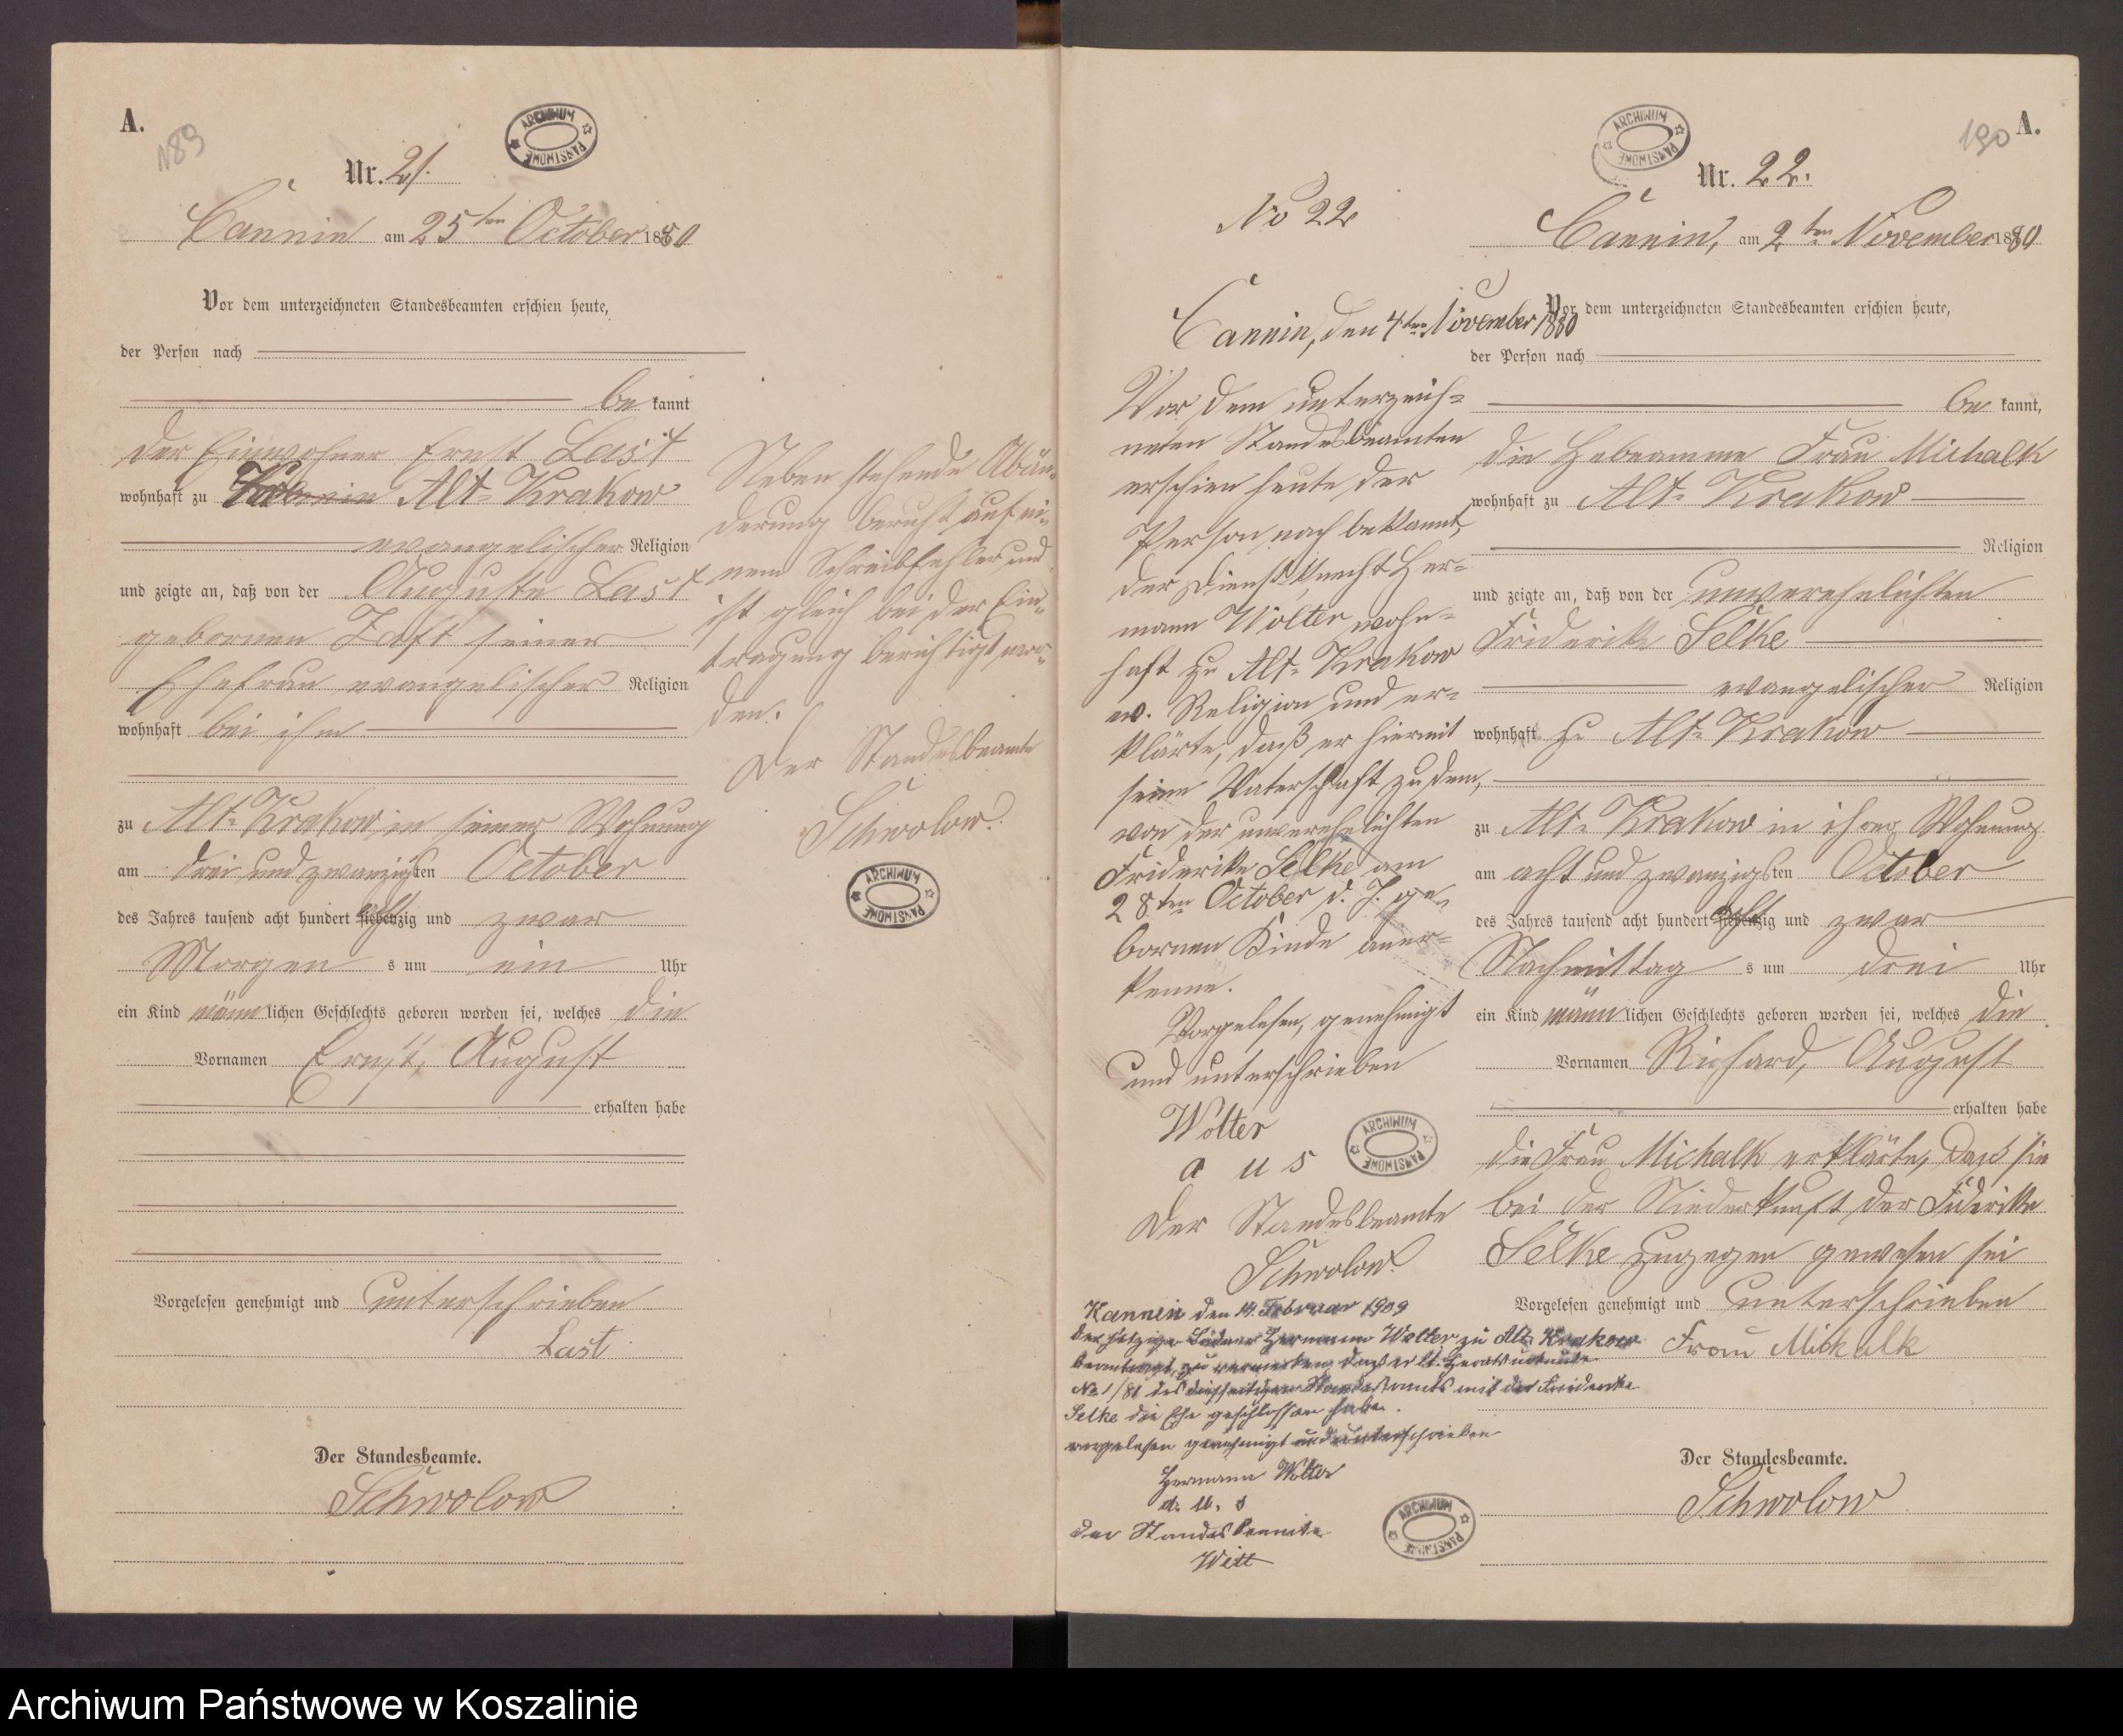 A.
189
ARCHIWUM PAŃSTWOWE
Nr. 21.
Cannin am 25ten October 1880
Vor dem unterzeichneten Standesbeamten erschien heute,
der Person nach
be kannt
der Einwohner Ernst Last
wohnhaft zu Alt-Krakow
evangelischer Religion
und zeigte an, daß von der Auguste Last
gebornen Last seiner
Ehefrau evangelischer Religion
wohnhaft bei ihm
zu Alt-Krakow in seiner Wohnung
am drei und zwanzigsten October
des Jahres tausend acht hundert achtzig und zwar
Morgen s um ein Uhr
ein Kind männlichen Geschlechts geboren worden sei, welches die
Vornamen Ernst, August
erhalten habe
Vorgelesen genehmigt und unterschrieben
Last
Der Standesbeamte.
Schwolow
Neben stehende Abän-
derung beruht auf ei-
nem Schreibfehler und
ist gleich bei der Ein-
tragung berichtigt wor-
den.
Der Standesbeamte
Schwolow.
ARCHIWUM PAŃSTWOWE
No 22
Cannin, den 4ten November 1880
Vor dem unterzeich-
neten Standesbeamten
erschien heute, der
Person nach bekannt,
der Dienstknecht Her-
mann Wolter wohn-
haft zu Alt-Krakow
ev. Religion und er-
klärte, daß er hiermit
seine Vaterschaft zu dem,
von der unverehelichten
Friderike Selke am
28ten October d. J. ge-
bornen Kinde aner-
kenne.
Vorgelesen, genehmigt
und unterschrieben
Wolter
a u s
Der Standesbeamte
Schwolow.
ARCHIWUM PAŃSTWOWE
Kannin den 14. Februar 1909
Der jetzige Hermann Wolter zu Alt-Krakow
beantragt, zu vermerken, daß er lt. Heiratsurkunde
No 1/81 des diesseitigen Standesamts mit der Friederike
Selke die Ehe geschlossen habe.
vorgelesen genehmigt und unterschrieben
Hermann Wolter
d. U. s
Der Standesbeamte
Witt
ARCHIWUM PAŃSTWOWE
ARCHIWUM PAŃSTWOWE
190
A.
Nr. 22.
Cannin, am 2ten November 1880
Vor dem unterzeichneten Standesbeamten erschien heute,
der Person nach
be kannt,
die Hebeamme Frau Michalk
wohnhaft zu Alt-Krakow
Religion
und zeigte an, daß von der unverehelichten
Friderike Selke
evangelischer Religion
wohnhaft zu Alt-Krakow
zu Alt-Krakow in ihrer Wohnung
am acht und zwanzigsten October
des Jahres tausend acht hundert achtzig und zwar
Nachmittag s um drei Uhr
ein Kind männlichen Geschlechts geboren worden sei, welches die
Vornamen Richard, August
erhalten habe
die Frau Michalk erklärte, daß sie
bei der Niederkunft der Fiderike
Selke zugegen gewesen sei
Vorgelesen genehmigt und unterschrieben
Frau Michalk
Der Standesbeamte.
Schwolow
Archiwum Państwowe w Koszalinie